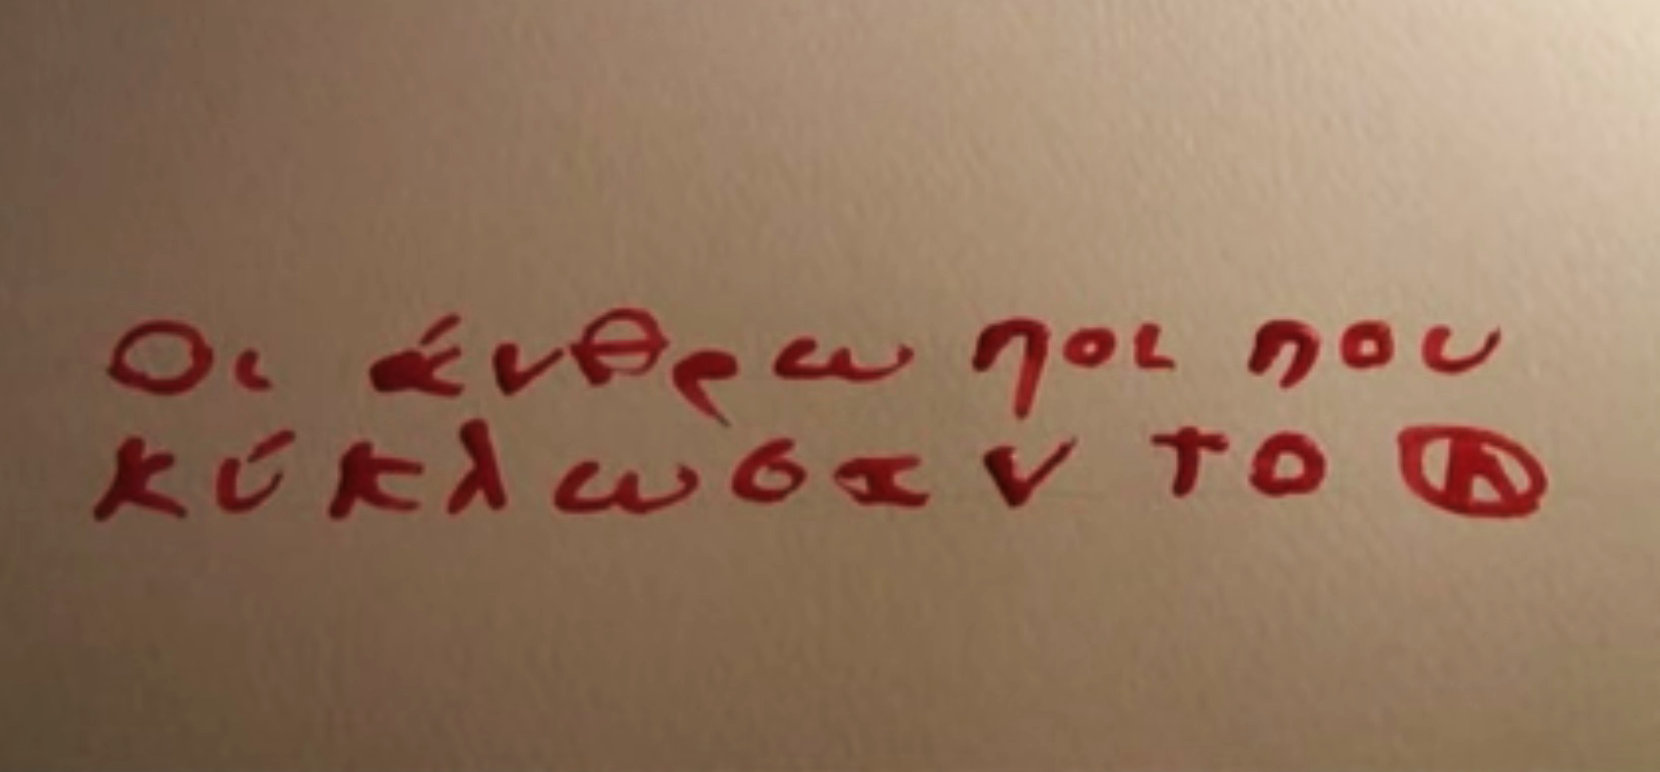 Οι άνθρωποι που
κύκλωσαν το Ⓐ